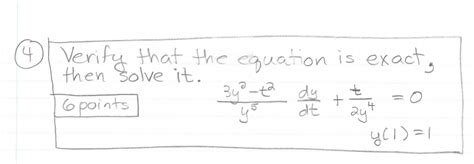 ④ Verify that the equation is exact,
then solve it.
6 points
(3y² - t²)/y⁵ dy/dt + t/(2y⁴) = 0
y(1) = 1